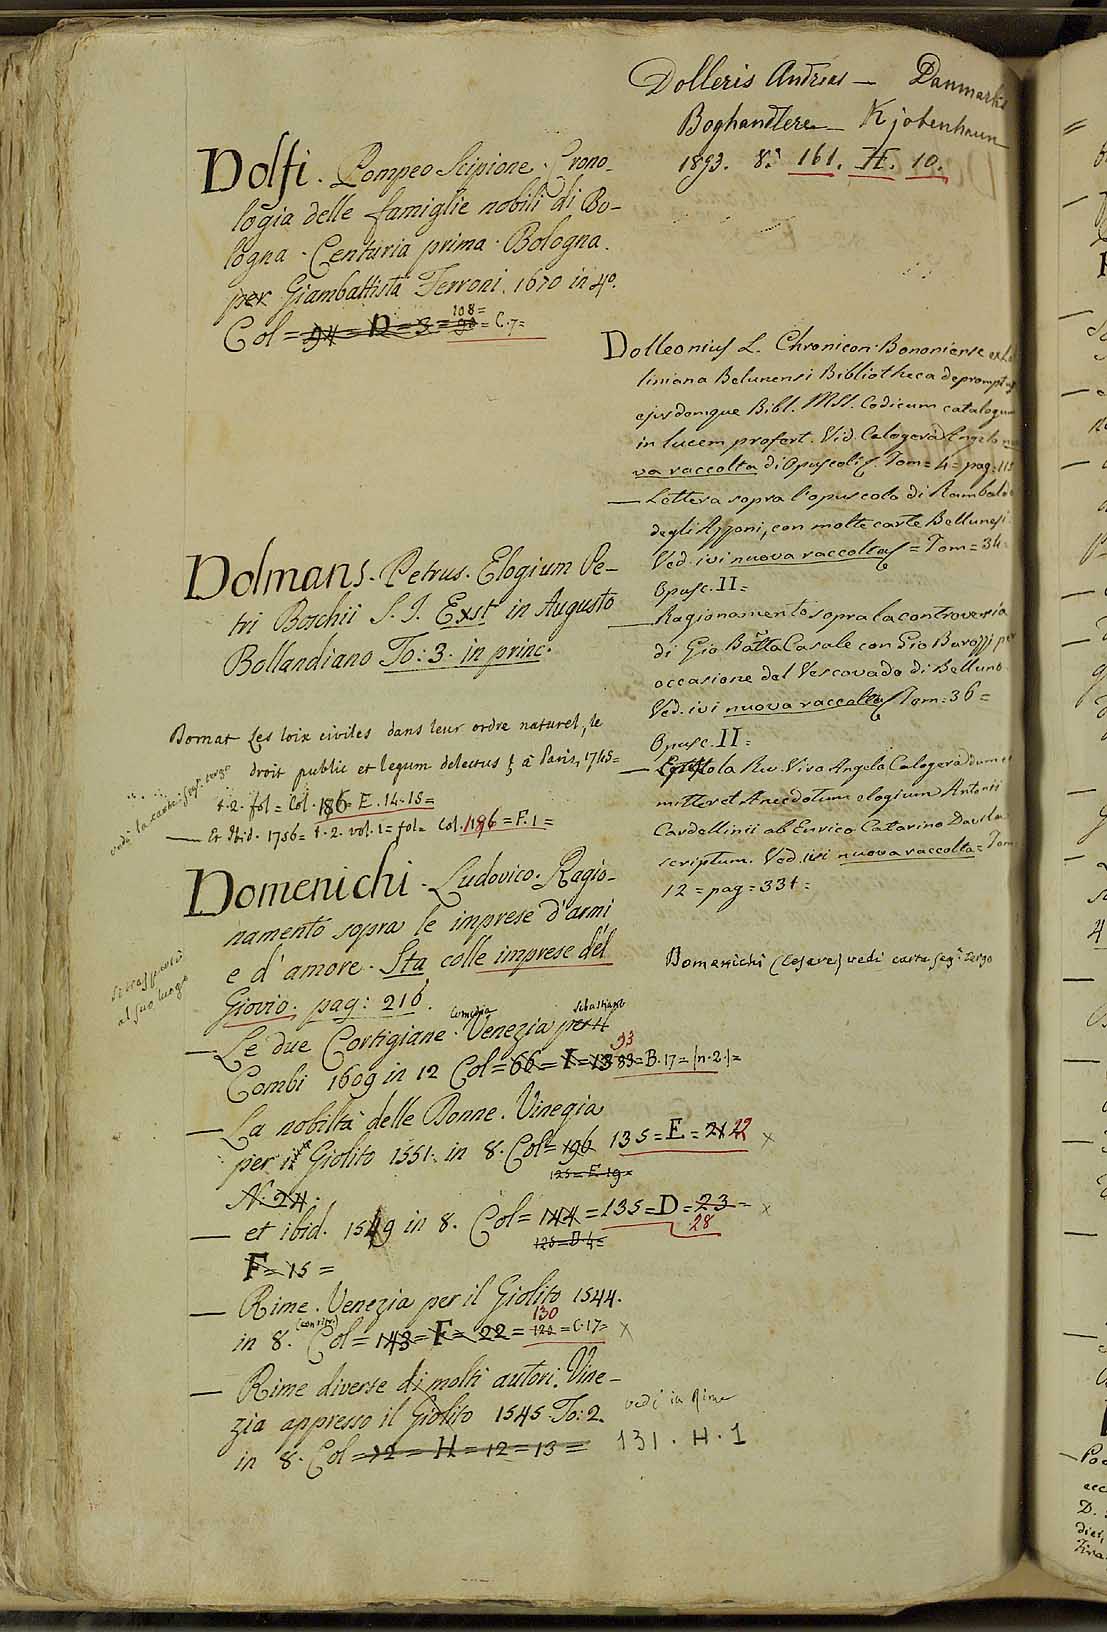 Dolfi. Pompeo Scipione. Crono-
logia delle famiglie nobili di Bo-
logna. Centuria prima. Bologna.
per Giambattista Ferroni. 1670 in 4º.
108=
Col = 94 = D = 3 = = C.7=
Dolmans. Petrus. Elogium Pe-
tri Boschii S. J. Exst in Augusto
Bollandiano To: 3. in princ.
Domat Les loix civiles dans leur ordre naturel, le
droit public et legum delectus à Paris, 1745=
t.2. fol = Col. 186 = E. 14-15=
— Et Ibid. 1756 = t.2. vol. 1 = fol = Col. 186 = F. 1 =
Domenichi. Ludovico. Ragio-
namento sopra le imprese d'armi
e d'amore. Sta colle imprese del
Giovio. pag: 216.
al suo luogo
— Le due Cortigiane. Comedia Venezia per Sebastiano
Combi 1609 in 12 Col = 66 = F = 13 93 = B. 17 = (n. 2.) =
— La nobiltà delle Donne. Vinegia
per il Giolito 1551. in 8. Col = 196 135 = E = 22 x
125 = E 19 =
N. 24.
— et ibid. 1549 in 8. Col = 144 = 135 = D = 23 = x
28
F = 15 =
— Rime. Venezia per il Giolito 1544.
130
in 8. Col = 143 = F = 22 = = C. 17 = x
— Rime diverse di molti autori. Vine-
zia appresso il Giolito 1545. To: 2.
in 8. Col = 12 = H = 12 = 13 =
vedi in Rime
131. H. 1
Dolleris Andreas — Danmarks
Boghandlere — Kjobenhaun
1893. 8.º 161. H. 10.
Dolleonius L. Chronicon Bononiense ex
liniana Belunensi Bibliotheca
ejusdemque Bibl. MSS. Codicum catalogum
in lucem profert. Vid. Calogerà Angelo
va raccolta di Opuscoli. Tom = 4 = pag: 115
— Lettera sopra l'opuscolo di Rambaldo
degli Azzoni, con molte carte Bellunesi.
Ved. ivi nuova raccolta = Tom = 34
Opusc. II =
— Ragionamento sopra la controversia
di Gio Batta Casale con Gio Barozzi per
occasione del Vescovado di Belluno
Ved. ivi nuova raccolta Tom: 36 =
Opusc. II =
— Epistola Rev. Viro Angelo Calogerà dum ei
mitteret Anecdotum elogium Antonii
Cardellinii ab Enrico Catarino Davila
scriptum. Ved. ivi nuova raccolta = Tom
12 = pag = 331 =
Domenichi (Cesare) vedi carta seg. tergo